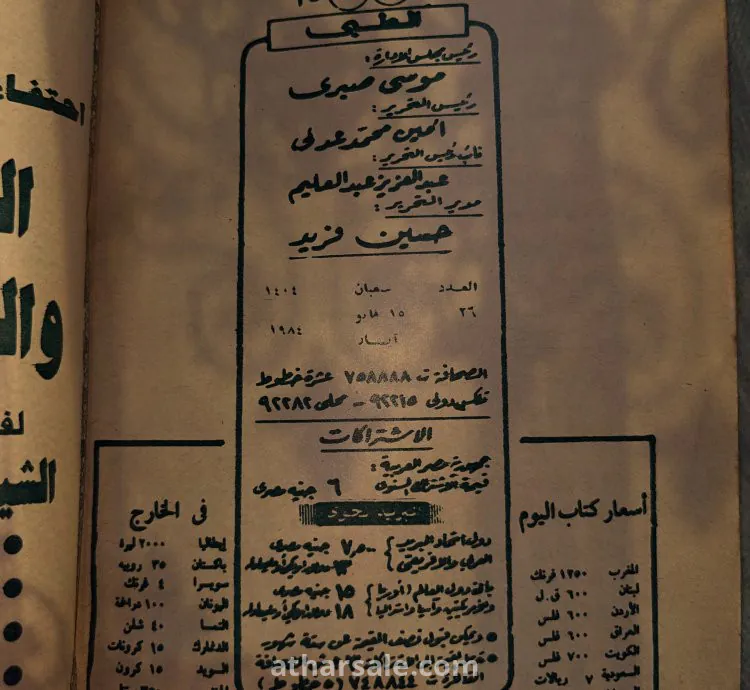 الطبى
رئيس مجلس الإدارة :
موسى صبرى
رئيس التحرير :
أمين محمد عدلى
نائب رئيس التحرير :
عبد العزيز عبد العليم
مدير التحرير :
حسين فريد
العدد شعبان ١٤٠٤
٢٦ ١٥ مايو
١٩٨٤
الصحافة ت ٧٥٨٨٨٨ عشرة خطوط
تلكس دولى ٩٢٢١٥ - محلى ٩٢٢٨٢
الاشتراكات
جمهورية مصر العربية :
قيمة الاشتراك السنوى ٦ جنيه مصرى
دول اتحاد البريد
العربى والافريقى
باقى دول العالم ( أوربا ١٥ جنيه مصرى
● ويمكن قبول نصف القيمة عن ستة شهور
٧٤٨٨٤٤ ( ٥ خطوط )
أسعار كتاب اليوم
المغرب ١٢٥٠ فرنك
لبنان ٦٠٠ ق . ل
الأردن ٦٠٠ فلس
العراق ٦٠٠ فلس
الكويت ٧٠٠ فلس
السعودية ٧ ريالات
فى الخارج
إيطاليا ٢٠٠٠ ليرا
باكستان ٣٥ روبية
سويسرا ٤ فرنك
اليونان ١٠٠ دراخمة
النمسا ٤٠ شلن
الدنمارك ١٥ كرونات
السويد ١٥ كرون
احتفا
ال
وال
لف
الشي
atharsale.com